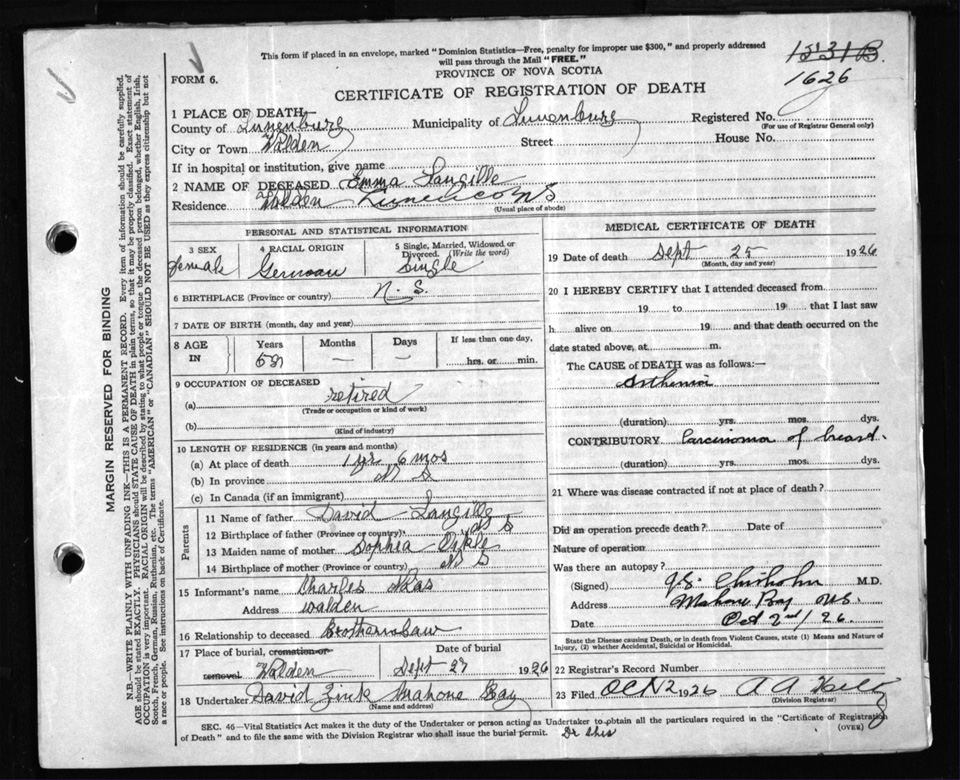 This form if placed in an envelope, marked "Dominion Statistics—Free, penalty for improper use $300," and properly addressed
will pass through the Mail "FREE."
1531B.
1626
FORM 6.
PROVINCE OF NOVA SCOTIA
CERTIFICATE OF REGISTRATION OF DEATH
1 PLACE OF DEATH
County of Lunenburg Municipality of Lunenburg Registered No.
(For use of Registrar General only)
City or Town Walden Street House No.
If in hospital or institution, give name
2 NAME OF DECEASED Emma Langille
Residence Walden Lunen co N S
(Usual place of abode)
MARGIN RESERVED FOR BINDING
N.B.—WRITE PLAINLY WITH UNFADING INK—THIS IS A PERMANENT RECORD. Every item of information should be carefully supplied.
AGE should be stated EXACTLY. PHYSICIANS should STATE CAUSE OF DEATH in plain terms, so that it may be properly classified. Exact statement of
OCCUPATION is very important. RACIAL ORIGIN will be described by stating to what people or tongue the deceased person belonged, whether English, Irish,
Scotch, French, German, Russian, Ruthenian, etc. The terms "AMERICAN" or "CANADIAN" SHOULD NOT BE USED as they express citizenship but not
a race or people. See instructions on back of Certificate.
PERSONAL AND STATISTICAL INFORMATION
3 SEX female
4 RACIAL ORIGIN German
5 Single, Married, Widowed or
Divorced. (Write the word)
Single
6 BIRTHPLACE (Province or country) N. S.
7 DATE OF BIRTH (month, day and year)
8 AGE IN
Years Months Days If less than one day,
— — hrs. or min.
9 OCCUPATION OF DECEASED
(a) retired
(Trade or occupation or kind of work)
(b)
(Kind of industry)
10 LENGTH OF RESIDENCE (in years and months)
(a) At place of death 1 yr 6 mos
(b) In province N S
(c) In Canada (if an immigrant)
Parents
11 Name of father David Langille
12 Birthplace of father (Province or country) N S
13 Maiden name of mother Sophia
14 Birthplace of mother (Province or country) N S
15 Informant's name Charles
Address Walden
16 Relationship to deceased Brotherinlaw
17 Place of burial, cremation or removal Walden
Date of burial Sept 27 1926
18 Undertaker David Zink Mahone Bay
(Name and address)
MEDICAL CERTIFICATE OF DEATH
19 Date of death Sept 25 1926
(Month, day and year)
20 I HEREBY CERTIFY that I attended deceased from
19 to 19 that I last saw
h alive on 19 and that death occurred on the
date stated above, at m.
The CAUSE of DEATH was as follows:—
Asthenia
(duration) yrs. mos. dys.
CONTRIBUTORY Carcinoma of breast.
(duration) yrs. mos. dys.
21 Where was disease contracted if not at place of death?
Did an operation precede death? Date of
Nature of operation
Was there an autopsy?
(Signed) J.S. Chisholm M.D.
Address Mahone Bay N.S.
Date Oct 2nd/26.
State the Disease causing Death, or in death from Violent Causes, state (1) Means and Nature of
Injury, (2) whether Accidental, Suicidal or Homicidal.
22 Registrar's Record Number
23 Filed OCN 2 1926 A A
(Division Registrar)
SEC. 46—Vital Statistics Act makes it the duty of the Undertaker or person acting as Undertaker to obtain all the particulars required in the "Certificate of Registration
of Death" and to file the same with the Division Registrar who shall issue the burial permit. Dr Chis
(OVER)